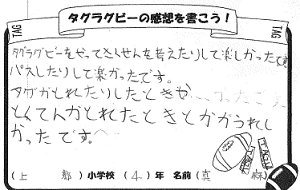 タグラグビーの感想を書こう！
TAG
TAG
タグラグビーをやってさくせんを考えたりして楽しかったです
パスしたりして楽かったです。
タグがとれたりしたときや
とくてんがとれたときとかがうれし
かったです。
(上　　)小学校 (4)年 名前(　　)